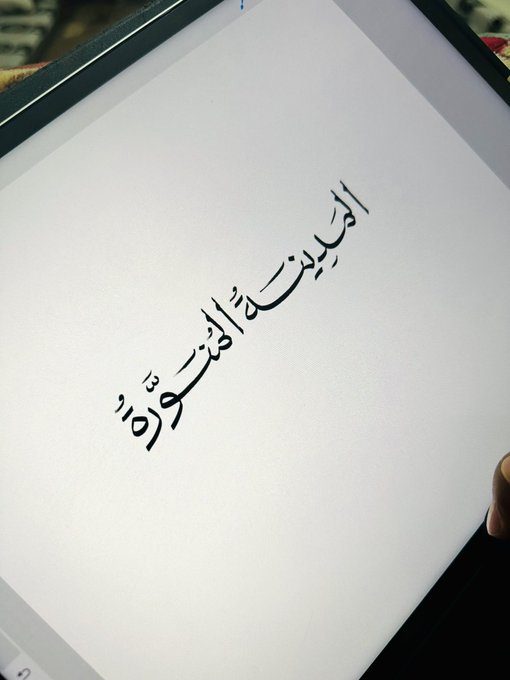 المَدِينَةُ المُنَوَّرَةُ